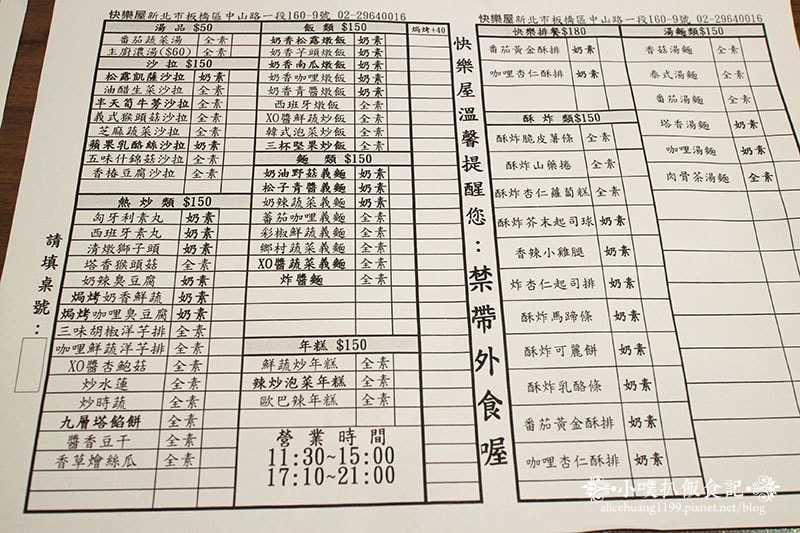 快樂屋新北市板橋區中山路一段160-9號 02-29640016
湯品 $50
番茄蔬菜湯 全素
主廚濃湯($60) 全素
沙拉 $150
松露凱薩沙拉 奶素
油醋生菜沙拉 全素
半天筍牛蒡沙拉 奶素
義式猴頭菇沙拉 全素
芝麻蔬菜沙拉 全素
蘋果乳酪絲沙拉 奶素
五味什錦菇沙拉 全素
香椿豆腐沙拉 全素
熱炒類 $150
匈牙利素丸 奶素
西班牙素丸 奶素
清燉獅子頭 奶素
塔香猴頭菇 全素
奶辣臭豆腐 奶素
焗烤奶香鮮蔬 奶素
焗烤咖哩臭豆腐 奶素
三味胡椒洋芋排 全素
咖哩鮮蔬洋芋排 全素
XO醬杏鮑菇 全素
炒水蓮 全素
炒時蔬 全素
九層塔餡餅 全素
醬香豆干 全素
香草燴絲瓜 全素
飯類 $150
焗烤+40
奶香松露燉飯 奶素
奶香芋頭燉飯 奶素
奶香南瓜燉飯 奶素
奶香咖哩燉飯 奶素
奶香青醬燉飯 奶素
西班牙燉飯 全素
XO醬鮮蔬炒飯 全素
韓式泡菜炒飯 全素
三杯堅果炒飯 全素
麵類 $150
奶油野菇義麵 奶素
松子青醬義麵 奶素
奶辣蔬菜義麵 奶素
蕃茄咖哩義麵 全素
彩椒鮮蔬義麵 全素
鄉村蔬菜義麵 全素
XO醬蔬菜義麵 全素
炸醬麵 全素
年糕 $150
鮮蔬炒年糕 全素
辣炒泡菜年糕 全素
歐巴辣年糕 全素
營業時間
11:30~15:00
17:10~21:00
請填桌號:
快樂屋溫馨提醒您:禁帶外食喔
快樂屋新北市板橋區中山路一段160-9號 02-29640016
快樂排餐$180
番茄黃金酥排 奶素
咖哩杏仁酥排 奶素
酥炸類$150
酥炸脆皮薯條 全素
酥炸山藥捲 全素
酥炸杏仁蘿蔔糕 全素
酥炸芥末起司球 奶素
香辣小雞腿 奶素
炸杏仁起司排 奶素
酥炸馬蹄條 奶素
酥炸可麗餅 奶素
酥炸乳酪條 奶素
番茄黃金酥排 奶素
咖哩杏仁酥排 奶素
湯麵類$150
香菇湯麵 全素
泰式湯麵 全素
番茄湯麵 全素
塔香湯麵 奶素
咖哩湯麵 奶素
肉骨茶湯麵 全素
小噗趴飯食記
alicehuang1199.pixnet.net/blog